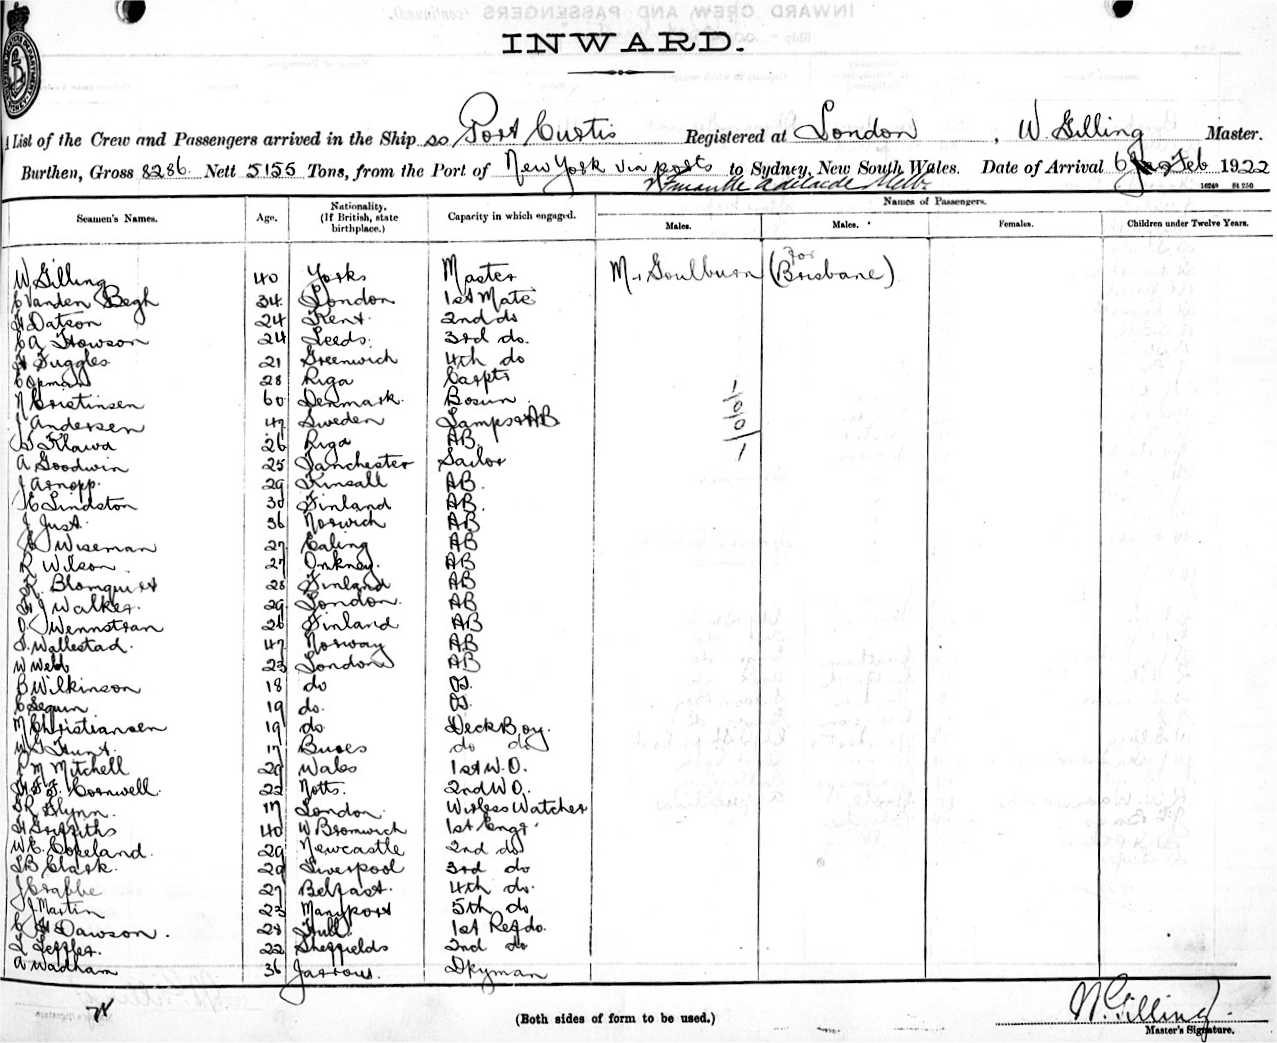 INWARD.
A List of the Crew and Passengers arrived in the Ship ss Port Curtis Registered at London, W. Gilling Master.
Burthen, Gross 8286. Nett 5155 Tons, from the Port of New York via ports to Sydney, New South Wales. Date of Arrival 6 Feb 1922
Fremantle Adelaide Melb.
16249 84 250
Seamen's Names. Age. Nationality. (If British, state birthplace.) Capacity in which engaged. Names of Passengers.
Males. Males. Females. Children under Twelve Years.
W Gilling 40 Yorks Master Mr Goulburn (for Brisbane)
C Vanden Begh 34 London 1st Mate
H Datson 24 Kent 2nd do
C A Howson 24 Leeds. 3rd do.
H Fuggles 21 Greenwich 4th do
28 Riga Carptr
N Cristinsen 60 Denmark. Bosun 1
J Andersen 47 Sweden Lamps & AB 0
Klawa 26 Riga AB. 0
A Goodwin 25 Manchester Sailor 1
J Arnopp. 29 Kinsall AB.
E Lindston 30 Finland AB.
J Just. 36 Norwich AB
Wiseman 27 Ealing AB
R Wilson. 27 Onkney. AB
K. Blomquist 28 Finland AB
H J Walker. 29 London. AB
Wennstran 26 Finland AB
S. Wallestad. 47 Norway AB
W Webb 23 London AB
B Wilkinson 18 do OS.
C Seguin 19 do. OS.
N Christiansen 19 do Deck Boy.
W G Hunt. 17 Bucs do do
M Mitchell 29 Wales 1st W.O.
H F F. Cornwell. 22 Notts. 2nd W.O.
Glynn. 17 London. Wirless Watcher
H Griffiths 40 W Bromwich 1st Engr.
W E. Copeland. 29 Newcastle 2nd do
L B Clark. 29 Liverpool 3rd do
J Crabbe 27 Belfast. 4th do.
J Martin 23 Maryport 5th do
C H Dawson. 28 Hull. 1st Ref do.
L Leffler. 22 Sheffields 2nd do
A Wadham 36 Jarrow. Dkyman
(Both sides of form to be used.)
W. Gilling
Master's Signature.